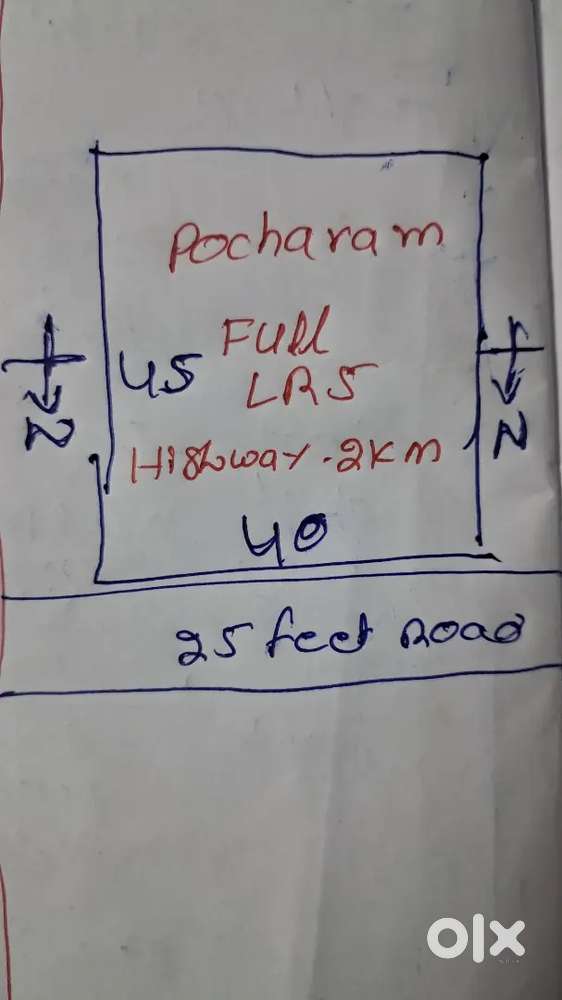 Pocharam
Full
45
LRS
Highway.2Km
N
N
40
25 feet Road
olx